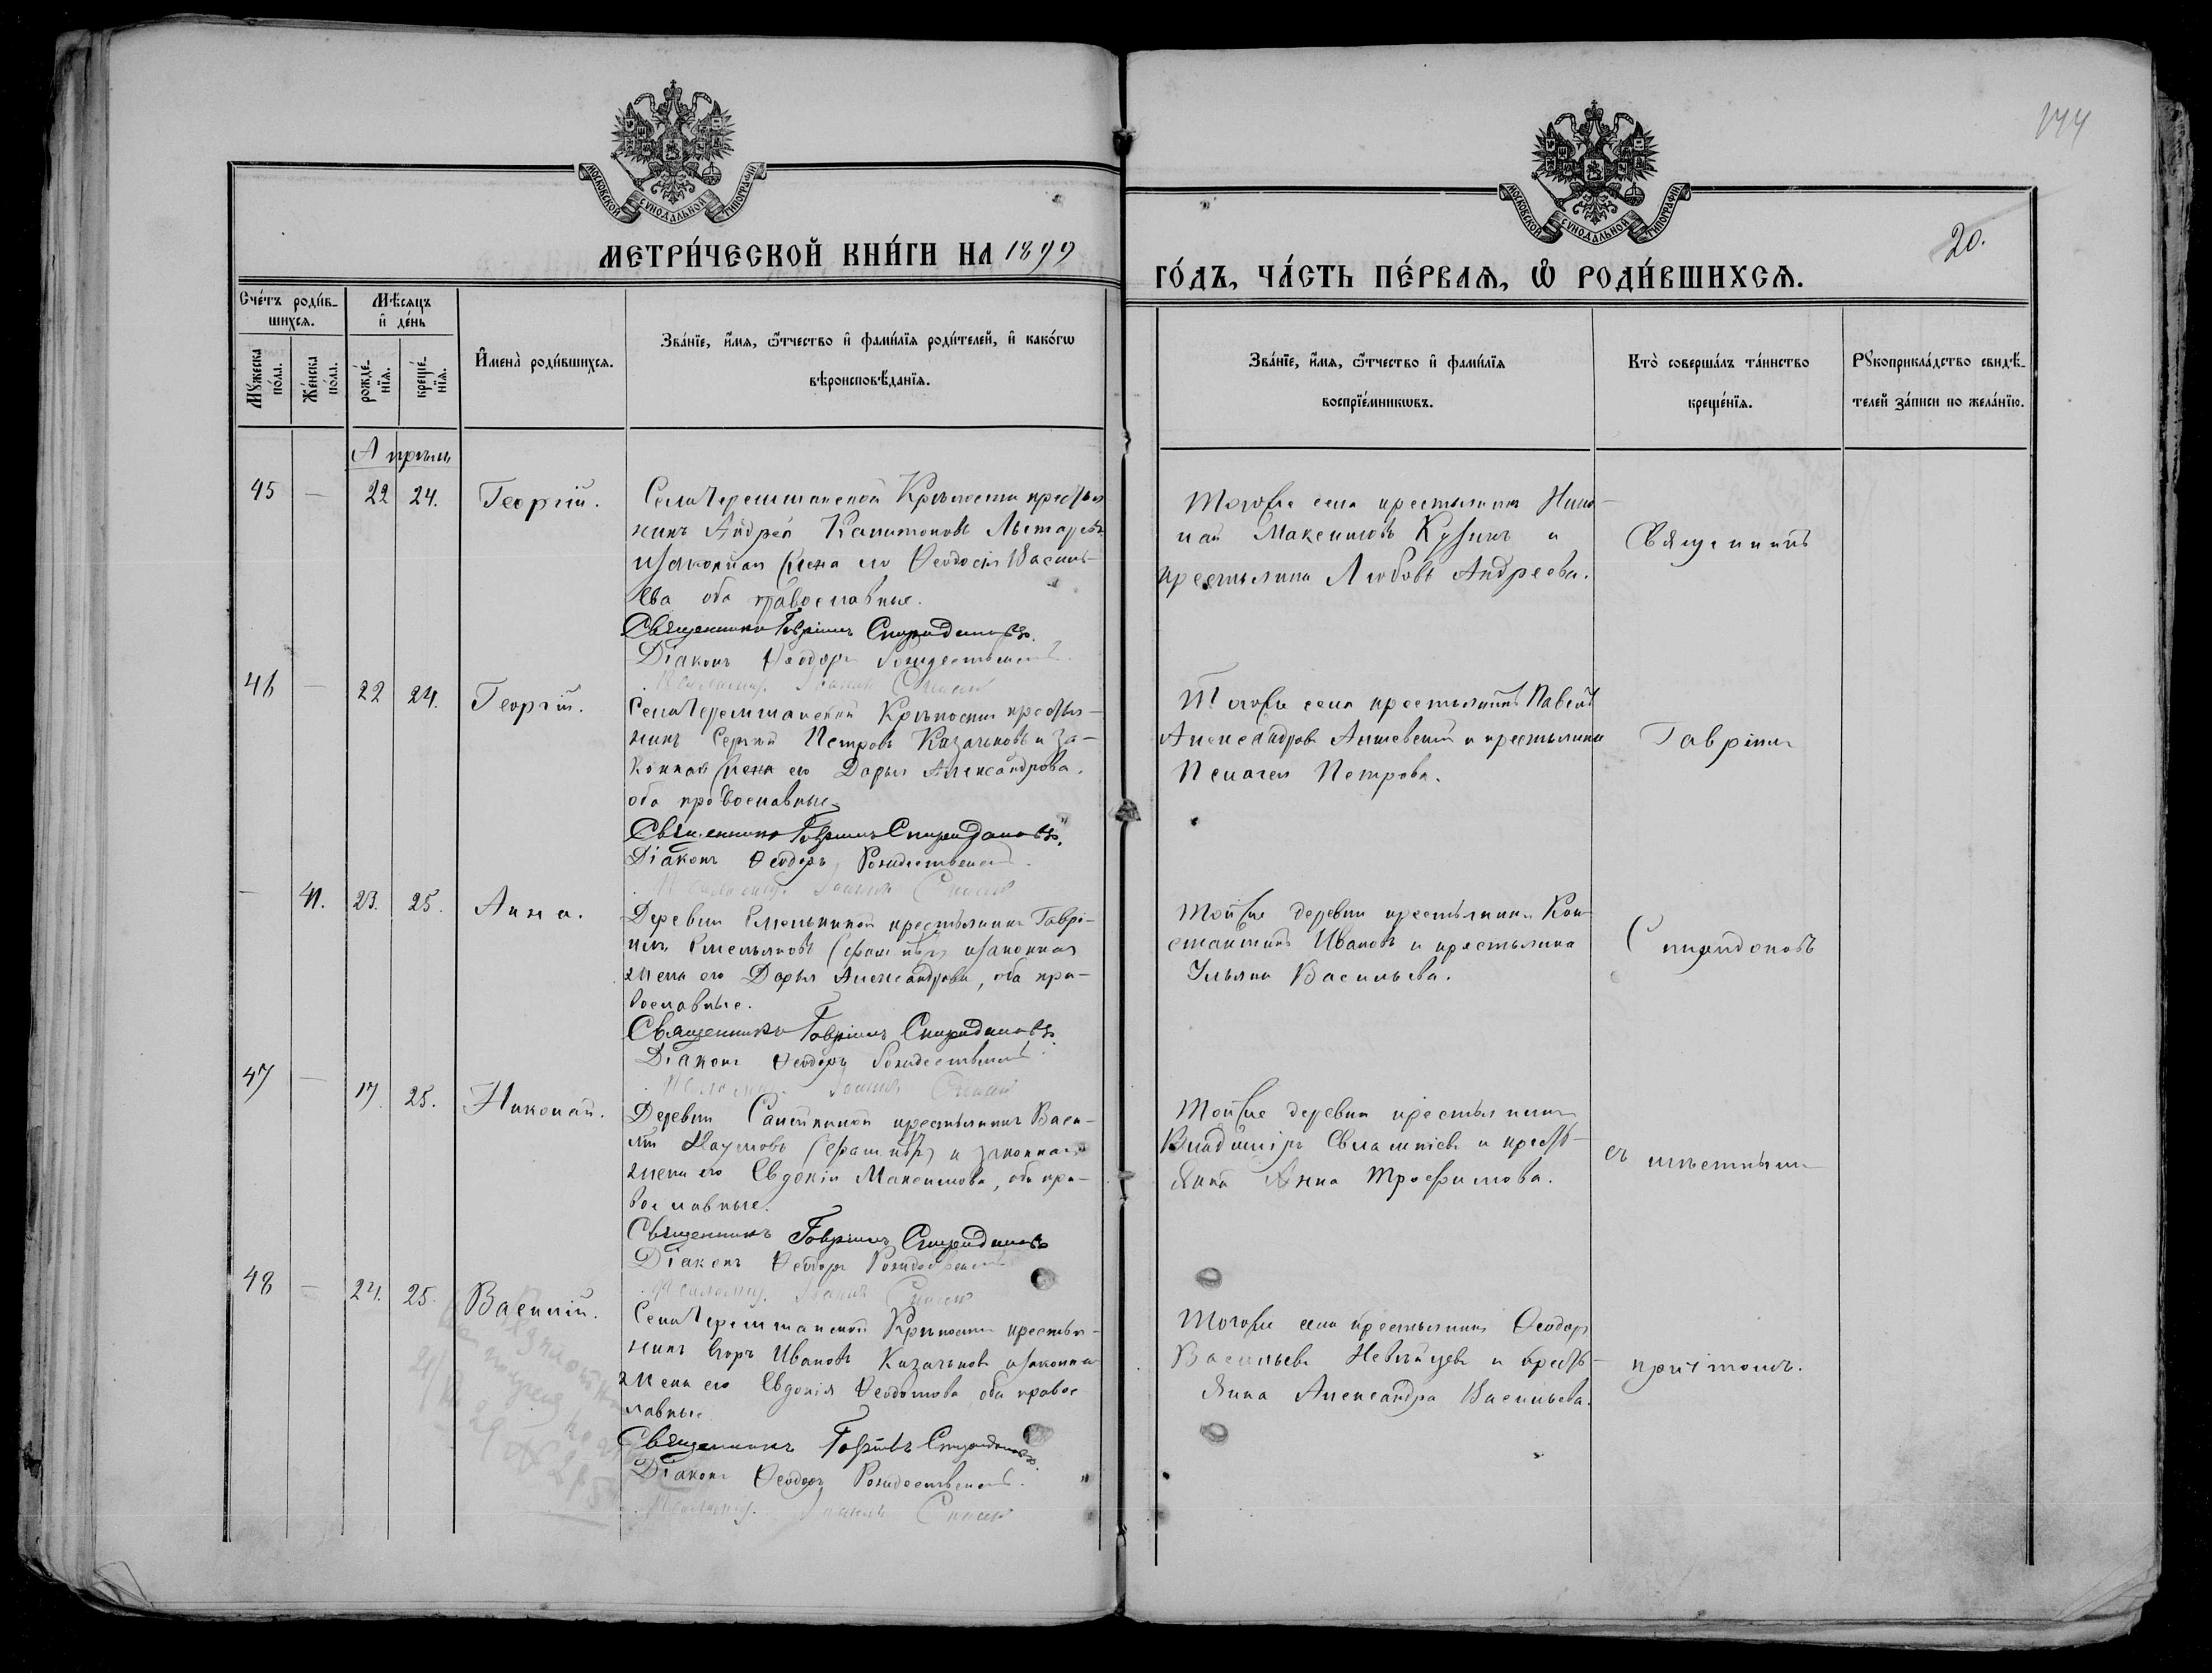 144
МОСКОВСКОЙ СѴНОДАЛЬНОЙ ТИПОГРАФІИ
МОСКОВСКОЙ СѴНОДАЛЬНОЙ ТИПОГРАФІИ
20.
МЕТРИ́ЧЕСКОЙ КНИ́ГИ НА 1899
ГО́ДЪ, ЧА́СТЬ ПЕ́РВАѦ, Ѡ҆ РОДИ́ВШИХСѦ.
Сче́тъ роди́в-
шихсѧ.
Мѣ́сѧцъ
и҆ де́нь
Мꙋ́жеска по́ла.
Же́нска по́ла.
рожде́-
нїѧ.
креще́-
нїѧ.
И҆мена̀ роди́вшихсѧ.
Зва́нїе, и҆́мѧ, ѻ҆́тчество и҆ фами́лїѧ роди́телей, и҆ како́гѡ
вѣроисповѣ́данїѧ.
Зва́нїе, и҆́мѧ, ѻ҆́тчество и҆ фами́лїѧ
воспрїе́мникѡвъ.
Кто̀ соверша́лъ та́инство
креще́нїѧ.
Рꙋкоприкла́дство свидѣ́-
телей за́писи по жела́нїю.
Апрѣль
45 — 22 24. Георгій.
Села Черемшанской Крѣпости кресть
нинъ Андрей Капитоновъ
и законная жена его Ѳеодосія Василь-
ева оба православные.
Священникъ Гавріилъ Спиридоновъ.
Діаконъ Ѳеодоръ Рождественскій
Псаломщ. Іоаннъ
Тогоже села крестьянинъ Нико-
лай Максимовъ и
крестьянка Любовь Андреева.
Священникъ
46 — 22 24. Георгій.
Села Черемшанской Крѣпости крестья-
нинъ Сергѣй Петровъ Казачковъ и за-
конная жена его Дарья Александрова.
оба православные.
Священникъ Гавріилъ Спиридоновъ.
Діаконъ Ѳеодоръ Рождественскій.
Псаломщ. Іоаннъ
Тогоже села крестьянинъ Павелъ
Александровъ и крестьянка
Пелагея Петрова.
Гавріилъ
— 41. 23. 25. Анна.
Деревни крестьянинъ Гаврі-
илъ Емельяновъ и законная
жена его Дарья Александрова, оба пра-
вославные.
Священникъ Гавріилъ Спиридоновъ.
Діаконъ Ѳеодоръ Рождественскій.
Псаломщ. Іоаннъ
Тойже деревни крестьянинъ Кон-
стантинъ Ивановъ и крестьянка
Ульяна Васильева.
Спиридоновъ
47 — 17 25. Николай.
Деревни крестьянинъ Васи-
лій Наумовъ и законная
жена его Евдокія Максимова, оба пра-
вославные.
Священникъ Гавріилъ Спиридоновъ
Діаконъ Ѳеодоръ Рождественскій
Псаломщ. Іоаннъ
Тойже деревни крестьянинъ
Владиміръ и кресть-
янка Анна Трофимова.
съ мѣстнымъ
48 — 24. 25. Василій.
Села Черемшанской Крѣпости крестья-
нинъ Егоръ Ивановъ Казачковъ и законная
жена его Евдокія Ѳеодотова оба правос
лавные.
Священникъ Гавріилъ Спиридоновъ.
Діаконъ Ѳеодоръ Рождественскій.
Псаломщ. Іоаннъ
Тогоже села крестьянинъ Ѳеодоръ
Васильевъ и кресть-
янка Александра Васильева.
причтомъ.